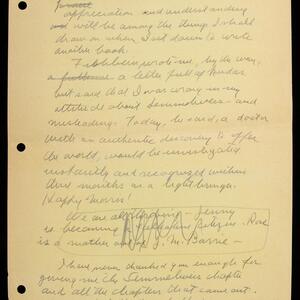 appreciation and understanding
and will be among the things I shall
draw on when I sit down to write
another book.
Fishbein wrote me, by the way,
a letter full of kudos
but said that I was wrong in my
attitude about Semmelweis - and
misleading. Today, he said, a doctor
with an authentic discovery to offer
the world, would be investigated
instantly and recognized within
three months as a light bringer.
Happy Morris!
We are all - Jenny
is becoming a - Rose
is a mother out of J. M. Barrie -
I have never thanked you enough for
giving me the Semmelweis chapter
and all the chapters that came out.